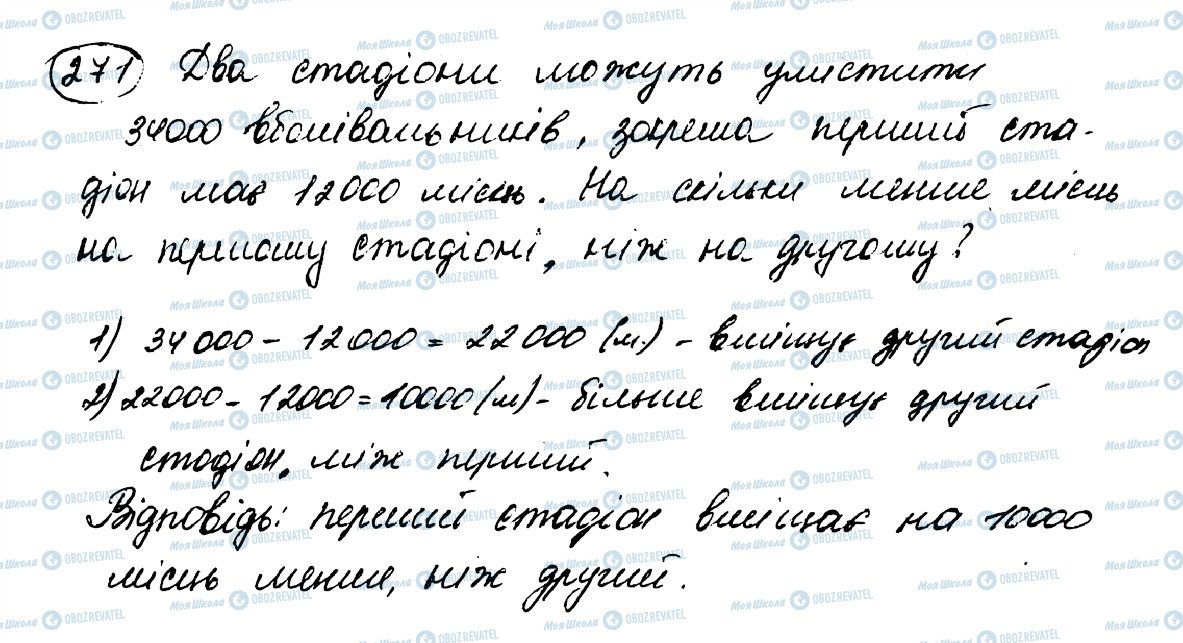 271 Два стадіони можуть умістити
34000 вболівальників, зокрема перший ста-
діон має 12000 місць. На скільки менше місць
на першому стадіоні, ніж на другому?
1) 34000 - 12000 = 22000 (м.) - вміщує другий стадіон
2) 22000 - 12000 = 10000 (м) - більше вміщує другий
стадіон, ніж перший.
Відповідь: перший стадіон вміщає на 10000
місць менше, ніж другий.
Моя Школа OBOZREVATEL